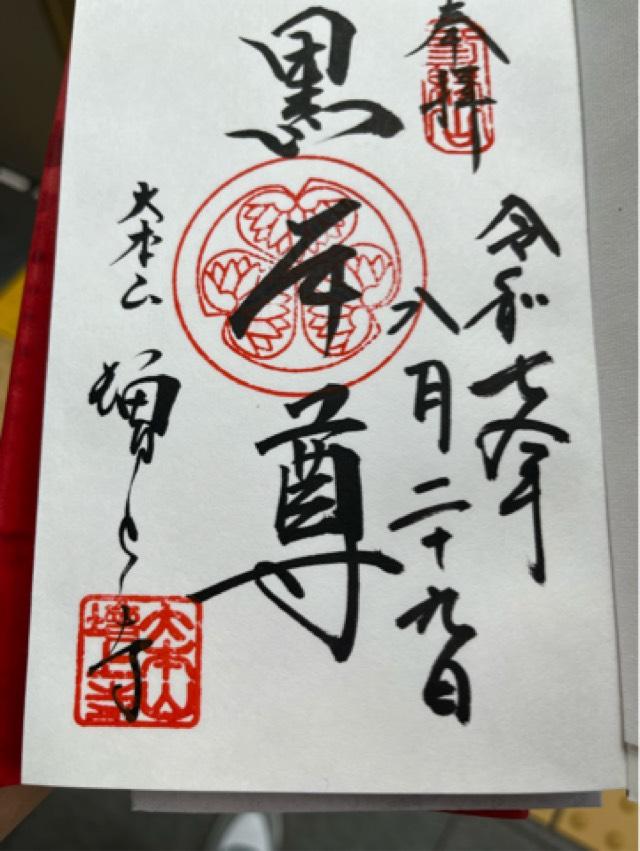 奉拝
令和七年
八月二十九日
黒本尊
大本山
増上寺
大本山
増上寺